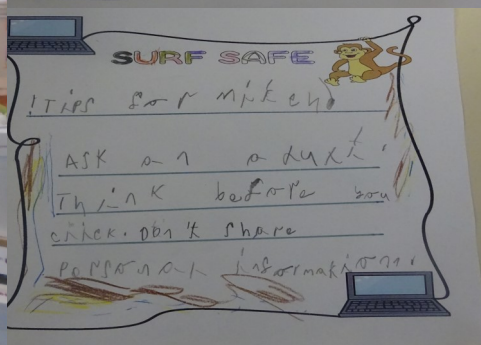 SURF SAFE
! Tips for Mitch.
ASK an adult.
Think before you
click. Don't share
Personal information.